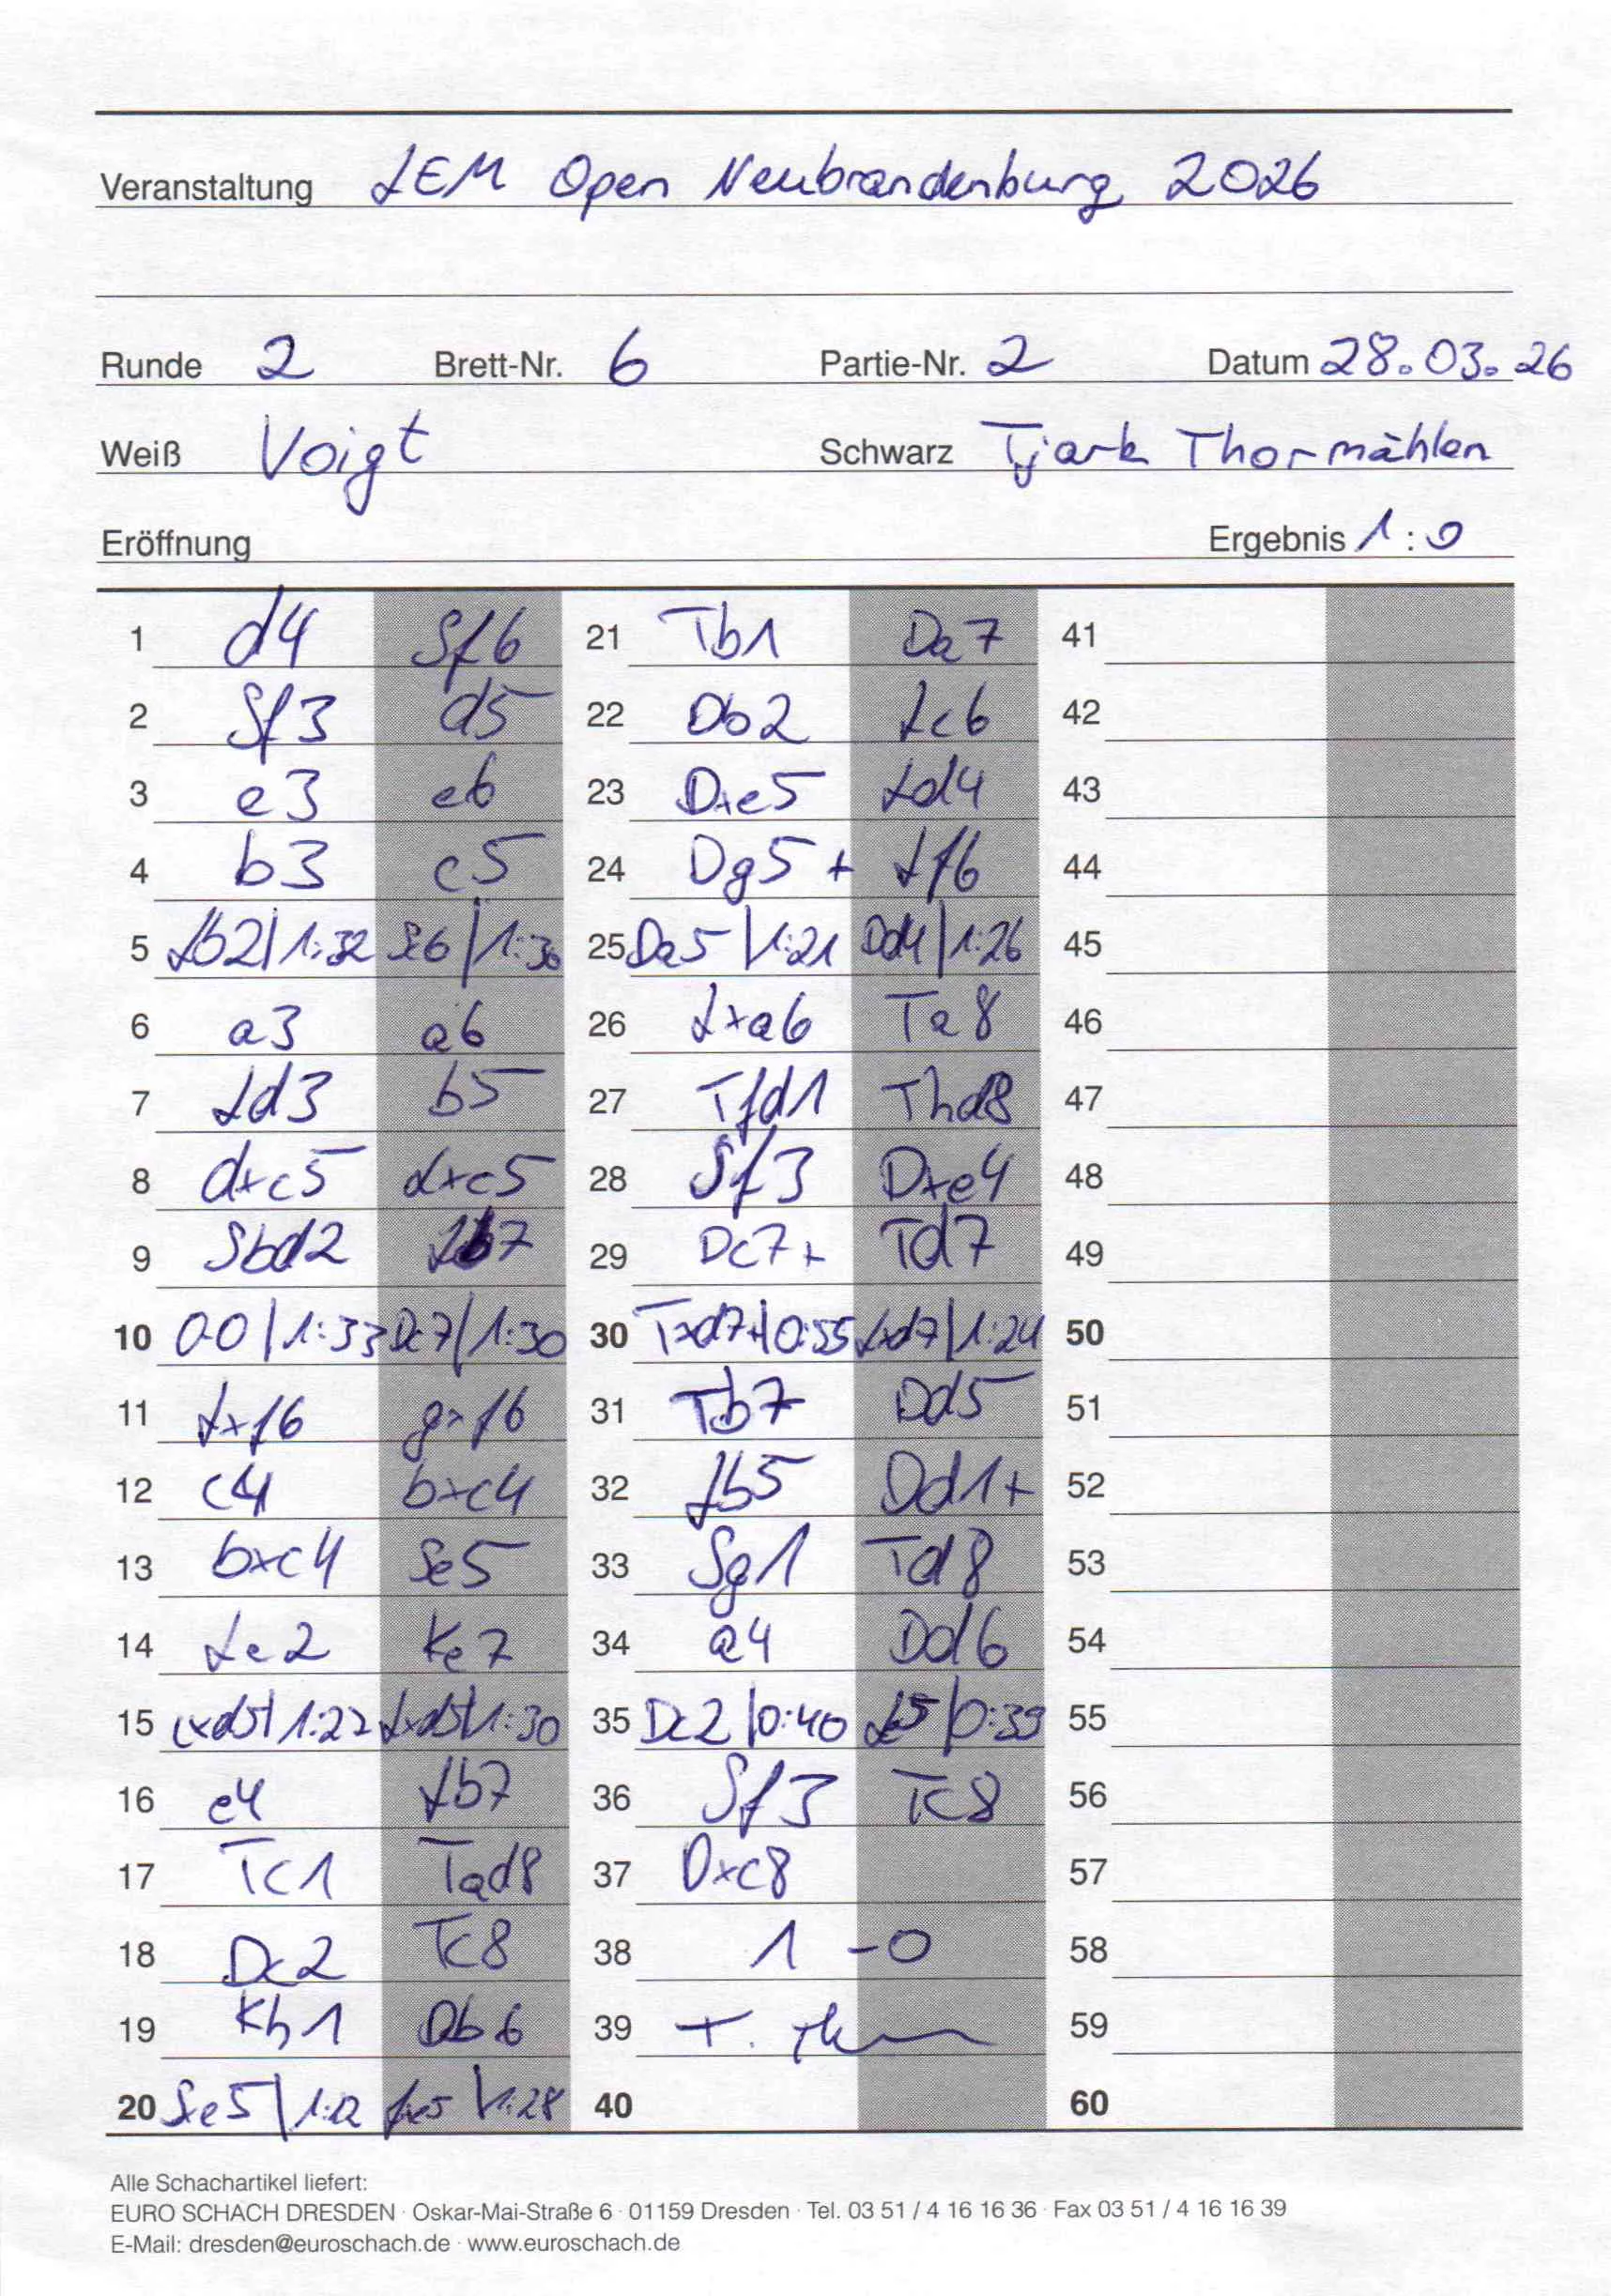 Veranstaltung LEM Open Neubrandenburg 2026
Runde 2 Brett-Nr. 6 Partie-Nr. 2 Datum 28.03.26
Weiß Voigt Schwarz Tjark Thormählen
Eröffnung Ergebnis 1:0
1 d4 Sf6 21 Tb1 Da7 41
2 Sf3 d5 22 Db2 Lc6 42
3 e3 e6 23 Dxe5 Ld4 43
4 b3 c5 24 Dg5+ Lf6 44
5 Lb2|1:32 Sc6|1:30 25 Da5|1:21 Dd4|1:26 45
6 a3 a6 26 Lxa6 Ta8 46
7 Ld3 b5 27 Tfd1 Thd8 47
8 dxc5 Lxc5 28 Sf3 Dxe4 48
9 Sbd2 Lb7 29 Dc7+ Td7 49
10 0-0|1:33 Dc7|1:30 30 Txd7+|0:55 Lxd7|1:24 50
11 Lxf6 gxf6 31 Tb7 Dd5 51
12 c4 bxc4 32 Lb5 Dd1+ 52
13 bxc4 Se5 33 Sg1 Td8 53
14 Le2 Ke7 34 a4 Dd6 54
15 cxd5|1:22 Lxd5|1:30 35 Dc2|0:40 Le5|0:39 55
16 e4 Lb7 36 Sf3 Tc8 56
17 Tc1 Tad8 37 Dxc8 57
18 Dc2 Tc8 38 1-0 58
19 Kh1 Db6 39 T. 59
20 Sxe5|1:12 fxe5|1:28 40 60
Alle Schachartikel liefert:
EURO SCHACH DRESDEN · Oskar-Mai-Straße 6 · 01159 Dresden · Tel. 03 51 / 4 16 16 36 · Fax 03 51 / 4 16 16 39
E-Mail: dresden@euroschach.de · www.euroschach.de